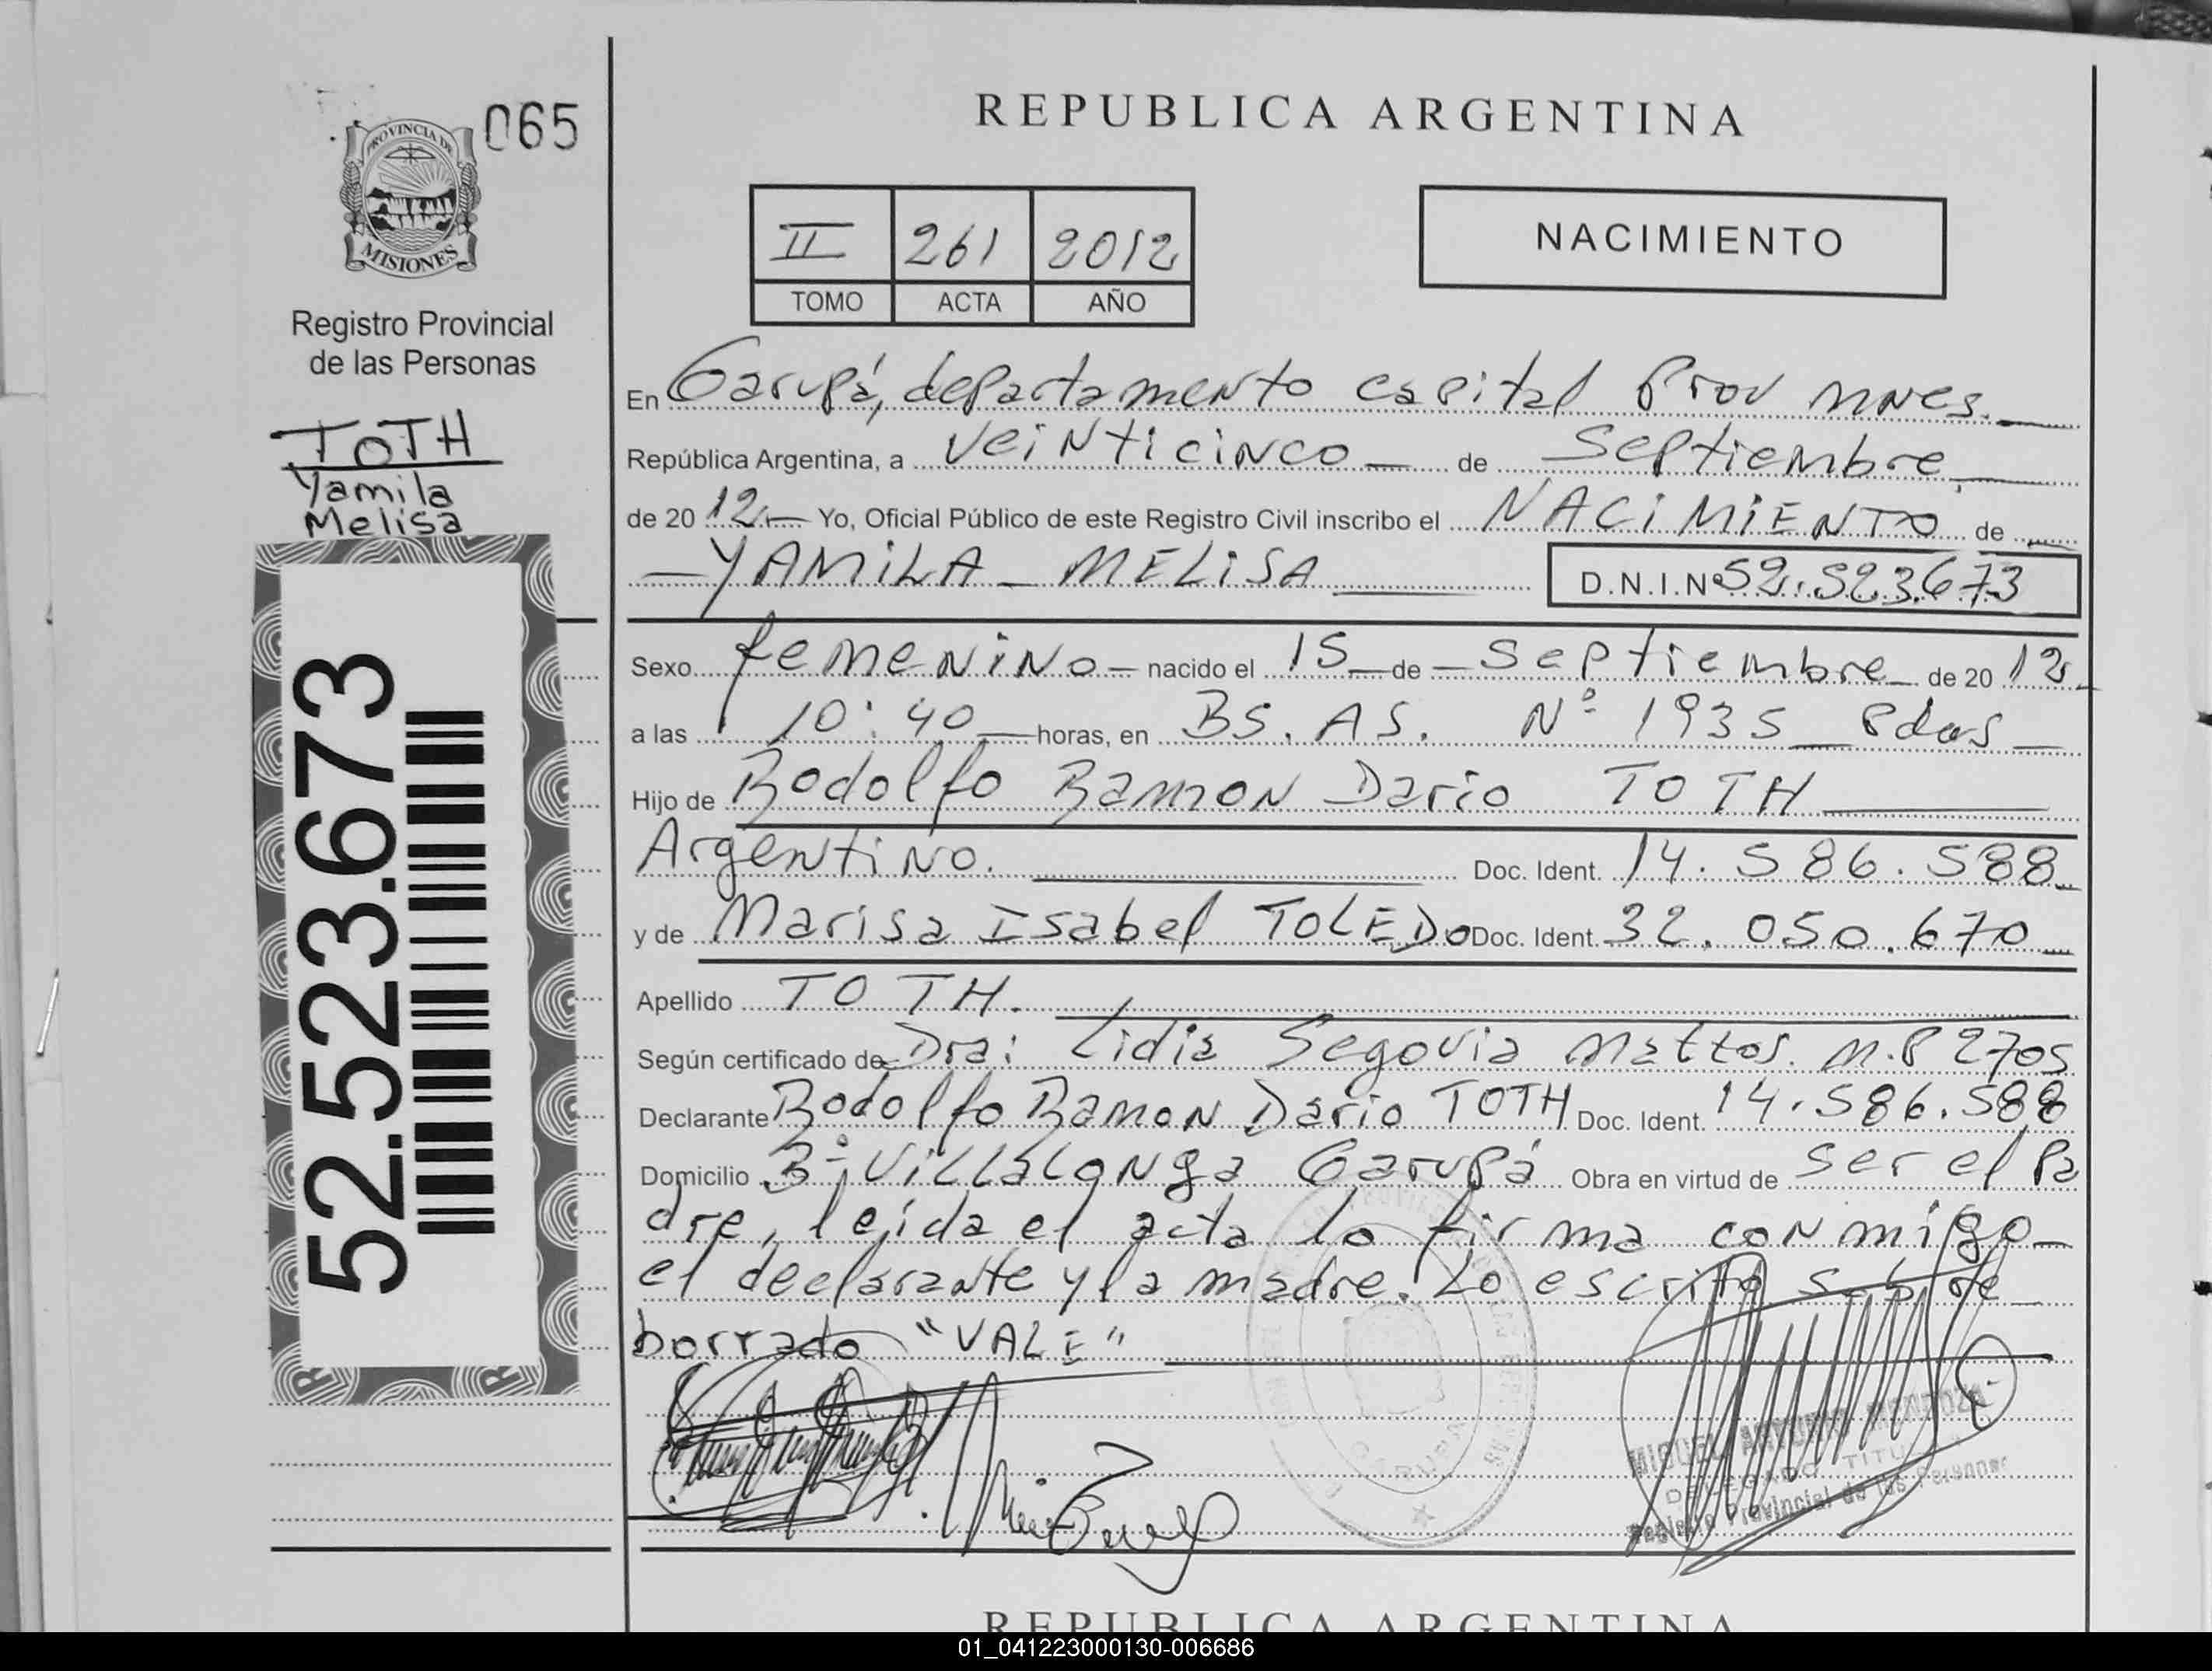 065
PROVINCIA DE
MISIONES
Registro Provincial
de las Personas
TOTH
Yamila
Melisa
52.523.673
REPUBLICA ARGENTINA
II 261 2012
TOMO ACTA AÑO
NACIMIENTO
En Garupá, departamento capital Prov mnes.
República Argentina, a veinticinco de Septiembre
de 2012 Yo, Oficial Público de este Registro Civil inscribo el NACIMIENTO de
YAMILA MELISA D.N.I.Nº 52.523.673
Sexo femenino nacido el 15 de Septiembre de 2012
a las 10:40 horas, en BS. AS. Nº 1935 Pdas
Hijo de Rodolfo Ramon Dario TOTH
Argentino. Doc. Ident. 14.586.588
y de Marisa Isabel TOLEDO Doc. Ident. 32.050.670
Apellido TOTH.
Según certificado de Dra: Lidia Segovia Mattos. M.P 2705
Declarante Rodolfo Ramon Dario TOTH Doc. Ident. 14.586.588
Domicilio Bº Villalonga Garupá Obra en virtud de ser el Pa
dre, leída el acta lo firma conmigo
el declarante y la madre. Lo escrito sobre
borrado "VALE"
MIGUEL ANTONIO
DELEGADO TITULAR
Registro Provincial de las Personas
GARUPA
REPUBLICA ARGENTINA
01_041223000130-006686